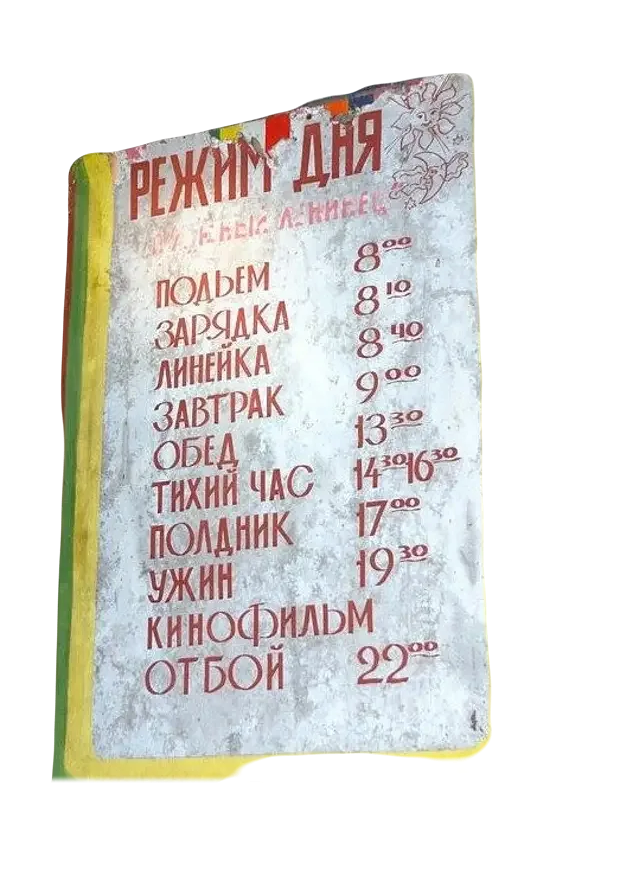 РЕЖИМ ДНЯ
ЛЕНИНЕЦ"
ПОДЬЕМ 8⁰⁰
ЗАРЯДКА 8¹⁰
ЛИНЕЙКА 8⁴⁰
ЗАВТРАК 9⁰⁰
ОБЕД 13³⁰
ТИХИЙ ЧАС 14³⁰16³⁰
ПОЛДНИК 17⁰⁰
УЖИН 19³⁰
КИНОФИЛЬМ
ОТБОЙ 22⁰⁰